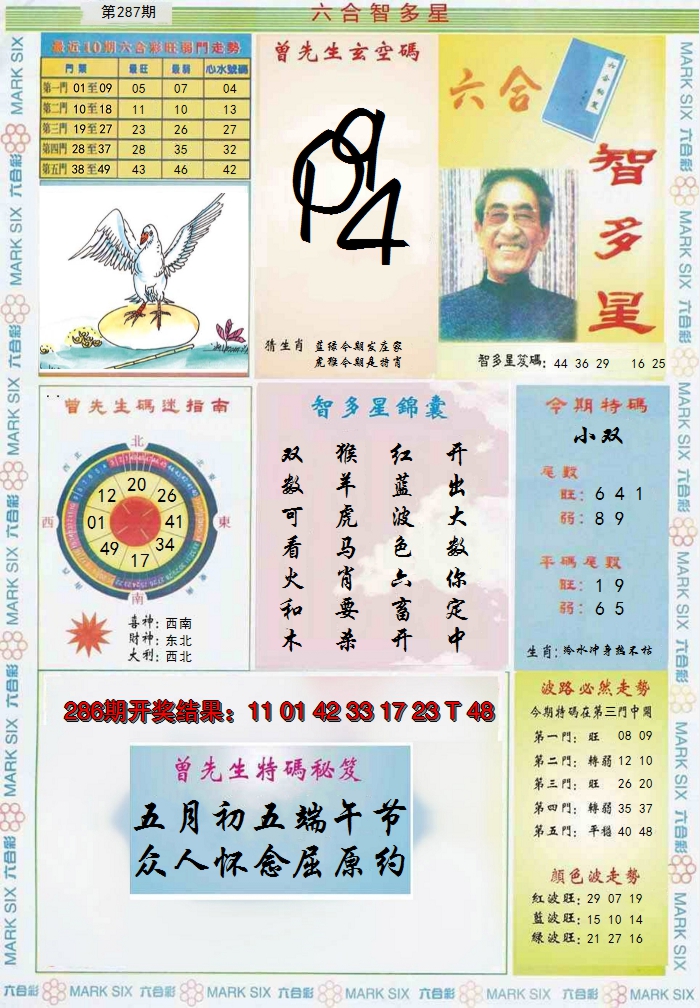 第287期
六合智多星
最近10期六合彩旺弱門走勢
門類 最旺 最弱 心水號碼
第一門 01至09 05 07 04
第二門 10至18 11 10 13
第三門 19至27 23 26 27
第四門 28至37 28 35 32
第五門 38至49 43 46 42
曾先生玄空碼
猜生肖 蓝绿今期发庄家
虎猴今期是特肖
六合
智多星
智多星笈碼: 44 36 29 16 25
曾先生碼迷指南
北
西
東
南
20
26
41
34
17
49
01
12
喜神: 西南
財神: 东北
大利: 西北
智多星錦囊
开出大数你定中
红蓝波色六畜开
猴羊虎马肖要杀
双数可看火和木
今期特碼
小双
尾數
旺: 6 4 1
弱: 8 9
平碼尾數
旺: 1 9
弱: 6 5
生肖: 冷水冲身热不怙
286期开奖结果: 11 01 42 33 17 23 T 48
曾先生特碼秘笈
五月初五端午节
众人怀念屈原约
波路必然走勢
今期特碼在第三門中開
第一門: 旺 08 09
第二門: 轉弱 12 10
第三門: 旺 26 20
第四門: 轉弱 35 37
第五門: 平穩 40 48
顏色波走勢
紅波旺: 29 07 19
藍波旺: 15 10 14
綠波旺: 21 27 16
六合彩 MARK SIX 六合彩 MARK SIX 六合彩 MARK SIX 六合彩 MARK SIX